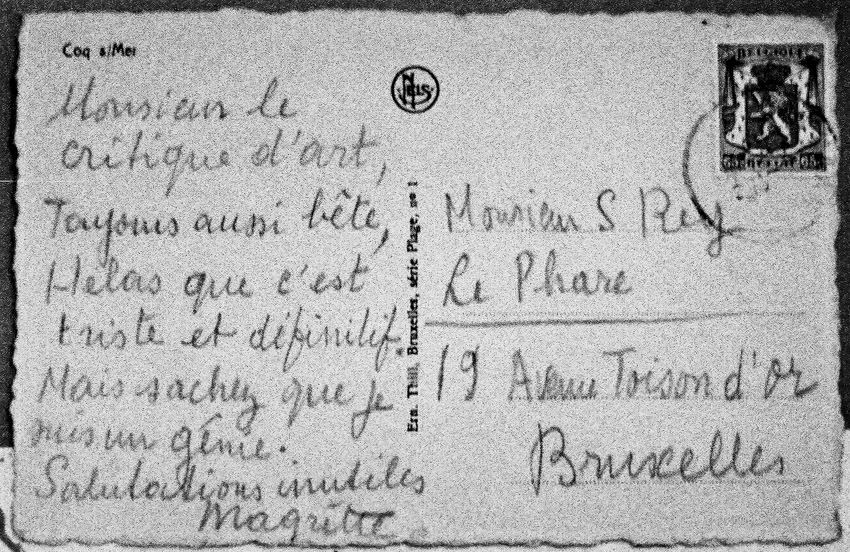 Coq s/Mer
NELS
BELGIQUE
65 BELGIE 65
Monsieur le
critique d'art,
Toujours aussi bête,
Hélas que c'est
triste et définitif.
Mais sachez que je
suis un génie.
Salutations inutiles
Magritte
Ern. Thill, Bruxelles, série Plage, nº 1
Monsieur S Rey
Le Phare
19 Avenue Toison d'or
Bruxelles